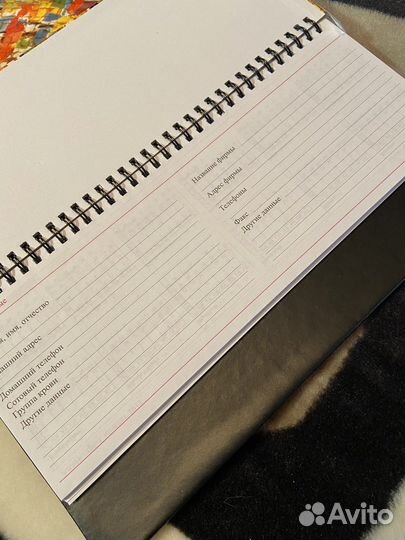 ные
я, имя, отчество
ашний адрес
Домашний телефон
Сотовый телефон
Группа крови
Другие данные
Название фирмы
Адрес фирмы
Телефоны
Факс
Другие данные
Avito